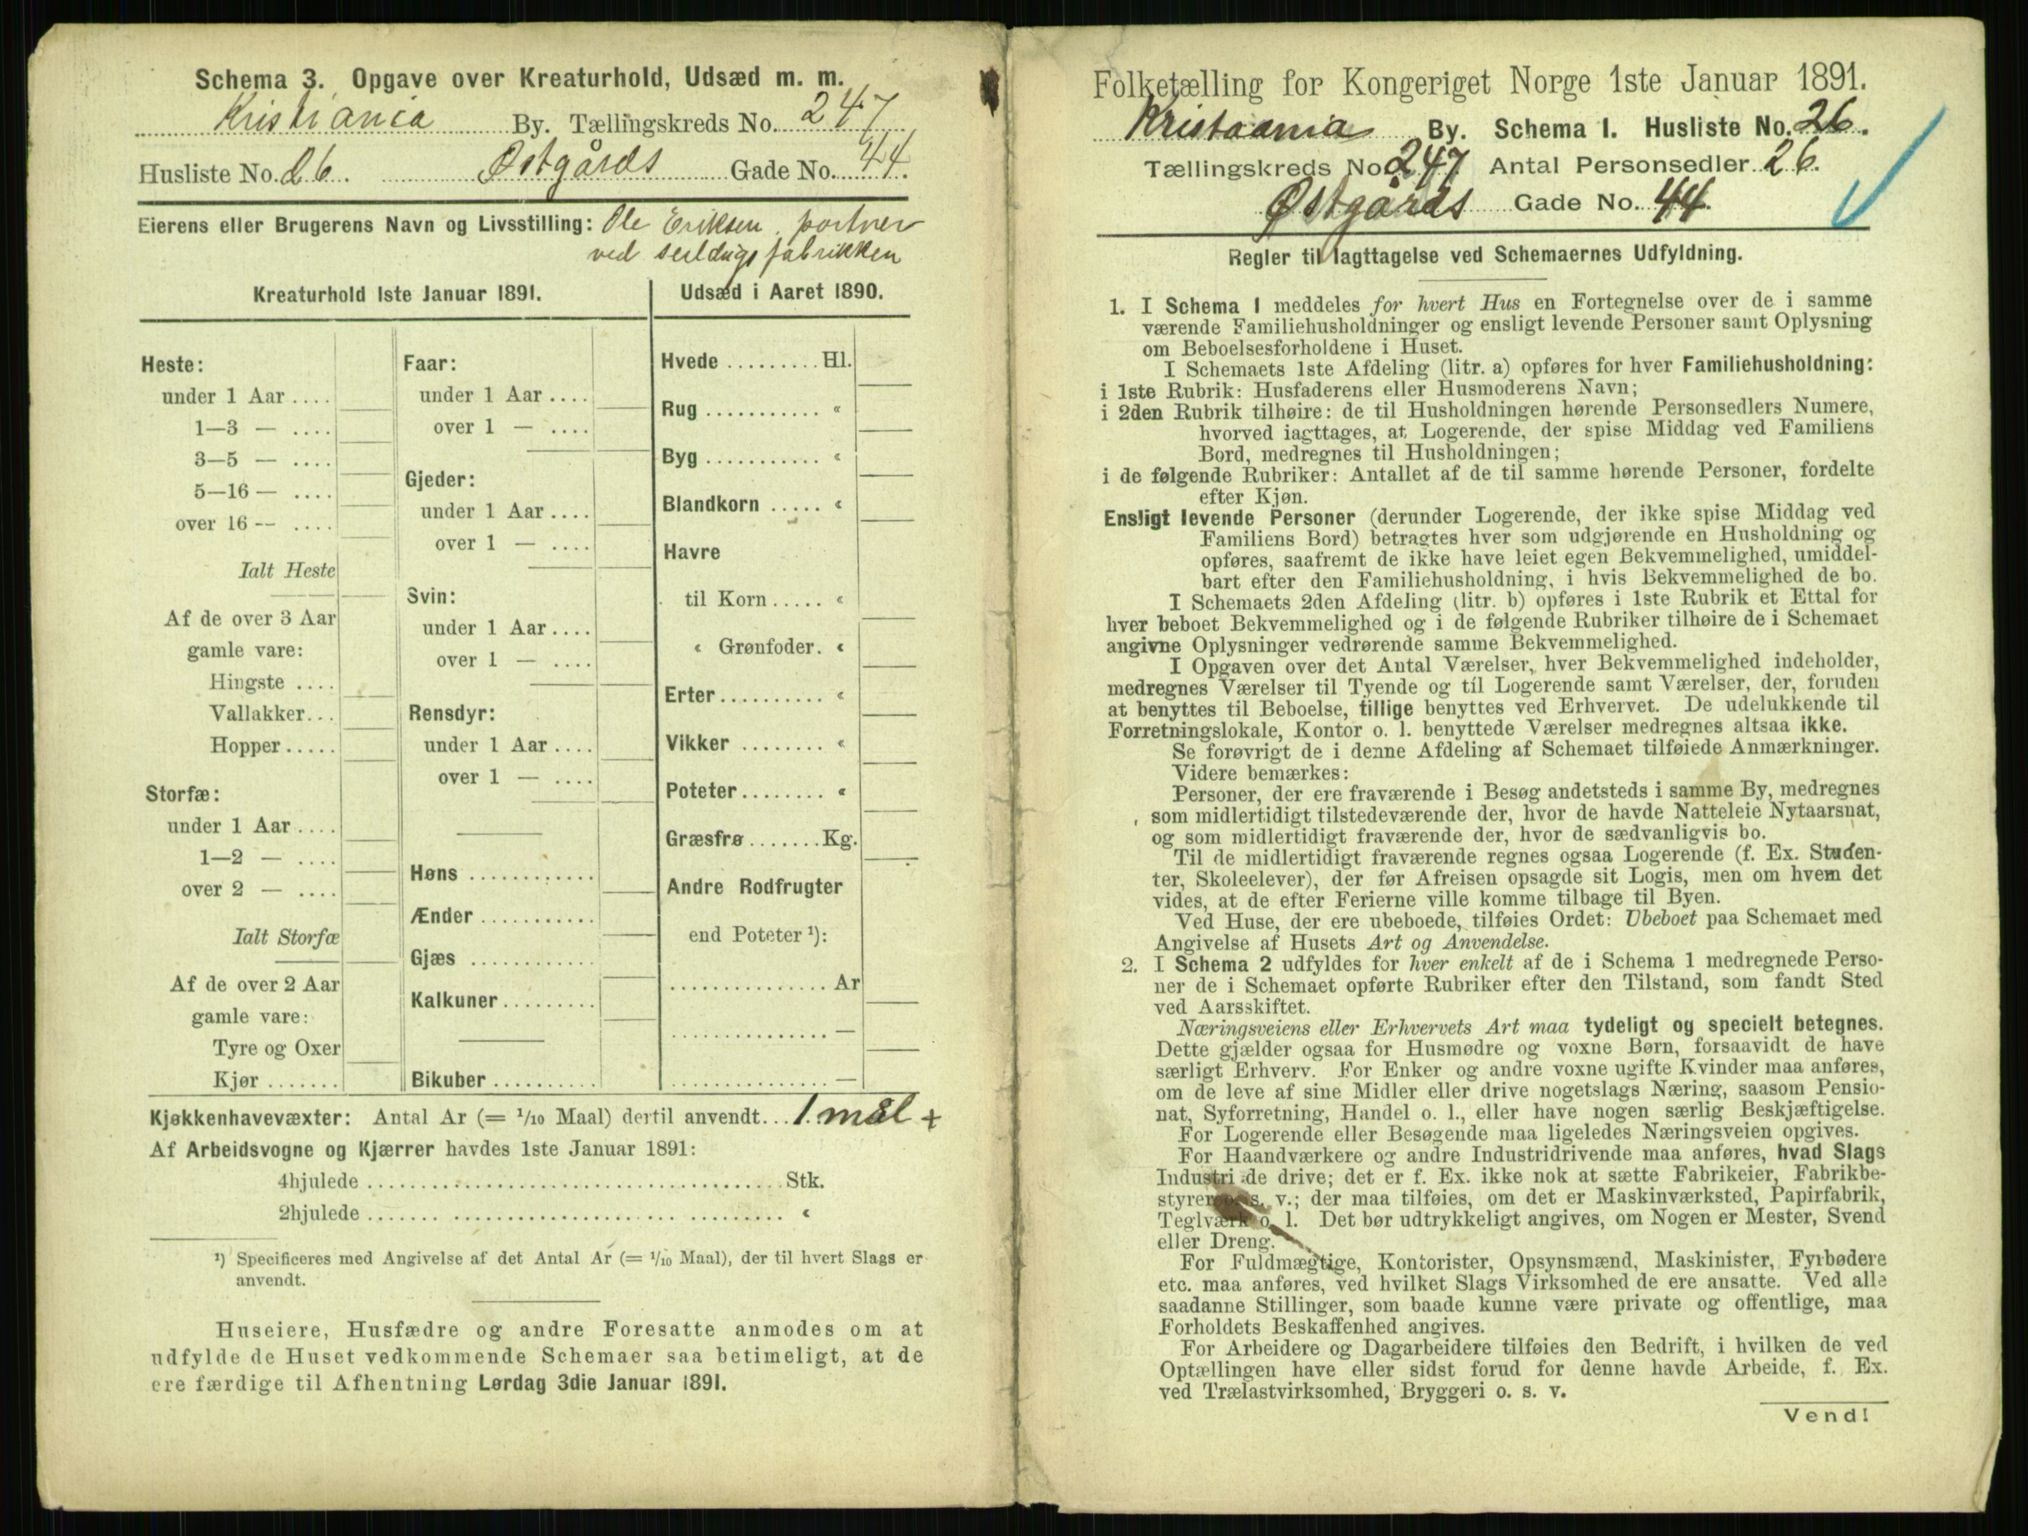 Schema 3. Opgave over Kreaturhold, Udsæd m. m.
Kristiania By. Tællingskreds No. 247
Husliste No. 26. Østgårds Gade No. 44.
Eierens eller Brugerens Navn og Livsstilling: Ole Eriksen, portner
ved seildugsfabrikken
Kreaturhold 1ste Januar 1891.
Heste:
under 1 Aar ....
1—3 — ....
3—5 — ....
5—16 — ....
over 16 — ....
Ialt Heste
Af de over 3 Aar
gamle vare:
Hingste ....
Vallakker...
Hopper .....
Storfæ:
under 1 Aar ....
1—2 — ....
over 2 — ....
Ialt Storfæ
Af de over 2 Aar
gamle vare:
Tyre og Oxer
Kjør .......
Faar:
under 1 Aar ....
over 1 — ....
Gjeder:
under 1 Aar ....
over 1 — ....
Svin:
under 1 Aar ....
over 1 — ....
Rensdyr:
under 1 Aar ....
over 1 — ....
Høns ............
Ænder ...........
Gjæs ............
Kalkuner .........
Bikuber ..........
Udsæd i Aaret 1890.
Hvede ......... Hl.
Rug ........... «
Byg ........... «
Blandkorn ..... «
Havre
til Korn ..... «
« Grønfoder. «
Erter .......... «
Vikker ........ «
Poteter ........ «
Græsfrø ....... Kg.
Andre Rodfrugter
end Poteter ¹):
............... Ar
............... —
............... —
Kjøkkenhavevæxter: Antal Ar (= 1/10 Maal) dertil anvendt... 1 mål +
Af Arbeidsvogne og Kjærrer havdes 1ste Januar 1891:
4hjulede ........................................ Stk.
2hjulede ........................................ «
¹) Specificeres med Angivelse af det Antal Ar (= 1/10 Maal), der til hvert Slags er
anvendt.
Huseiere, Husfædre og andre Foresatte anmodes om at
udfylde de Huset vedkommende Schemaer saa betimeligt, at de
ere færdige til Afhentning Lørdag 3die Januar 1891.
Folketælling for Kongeriget Norge 1ste Januar 1891.
Kristiania By. Schema 1. Husliste No. 26.
Tællingskreds No. 247 Antal Personsedler 26.
Østgårds Gade No. 44.
Regler til Iagttagelse ved Schemaernes Udfyldning.
1. I Schema 1 meddeles for hvert Hus en Fortegnelse over de i samme
værende Familiehusholdninger og ensligt levende Personer samt Oplysning
om Beboelsesforholdene i Huset.
I Schemaets 1ste Afdeling (litr. a) opføres for hver Familiehusholdning:
i 1ste Rubrik: Husfaderens eller Husmoderens Navn;
i 2den Rubrik tilhøire: de til Husholdningen hørende Personsedlers Numere,
hvorved iagttages, at Logerende, der spise Middag ved Familiens
Bord, medregnes til Husholdningen;
i de følgende Rubriker: Antallet af de til samme hørende Personer, fordelte
efter Kjøn.
Ensligt levende Personer (derunder Logerende, der ikke spise Middag ved
Familiens Bord) betragtes hver som udgjørende en Husholdning og
opføres, saafremt de ikke have leiet egen Bekvemmelighed, umiddel-
bart efter den Familiehusholdning, i hvis Bekvemmelighed de bo.
I Schemaets 2den Afdeling (litr. b) opføres i 1ste Rubrik et Ettal for
hver beboet Bekvemmelighed og i de følgende Rubriker tilhøire de i Schemaet
angivne Oplysninger vedrørende samme Bekvemmelighed.
I Opgaven over det Antal Værelser, hver Bekvemmelighed indeholder,
medregnes Værelser til Tyende og til Logerende samt Værelser, der, foruden
at benyttes til Beboelse, tillige benyttes ved Erhvervet. De udelukkende til
Forretningslokale, Kontor o. l. benyttede Værelser medregnes altsaa ikke.
Se forøvrigt de i denne Afdeling af Schemaet tilføiede Anmærkninger.
Videre bemærkes:
Personer, der ere fraværende i Besøg andetsteds i samme By, medregnes
som midlertidigt tilstedeværende der, hvor de havde Natteleie Nytaarsnat,
og som midlertidigt fraværende der, hvor de sædvanligvis bo.
Til de midlertidigt fraværende regnes ogsaa Logerende (f. Ex. Studen-
ter, Skoleelever), der før Afreisen opsagde sit Logis, men om hvem det
vides, at de efter Ferierne ville komme tilbage til Byen.
Ved Huse, der ere ubeboede, tilføies Ordet: Ubeboet paa Schemaet med
Angivelse af Husets Art og Anvendelse.
2. I Schema 2 udfyldes for hver enkelt af de i Schema 1 medregnede Perso-
ner de i Schemaet opførte Rubriker efter den Tilstand, som fandt Sted
ved Aarsskiftet.
Næringsveiens eller Erhvervets Art maa tydeligt og specielt betegnes.
Dette gjælder ogsaa for Husmødre og voxne Børn, forsaavidt de have
særligt Erhverv. For Enker og andre voxne ugifte Kvinder maa anføres,
om de leve af sine Midler eller drive nogetslags Næring, saasom Pensio-
nat, Syforretning, Handel o. l., eller have nogen særlig Beskjæftigelse.
For Logerende eller Besøgende maa ligeledes Næringsveien opgives.
For Haandværkere og andre Industridrivende maa anføres, hvad Slags
Industri de drive; det er f. Ex. ikke nok at sætte Fabrikeier, Fabrikbe-
styrer o. s. v.; der maa tilføies, om det er Maskinværksted, Papirfabrik,
Teglværk o. l. Det bør udtrykkeligt angives, om Nogen er Mester, Svend
eller Dreng.
For Fuldmægtige, Kontorister, Opsynsmænd, Maskinister, Fyrbødere
etc. maa anføres, ved hvilket Slags Virksomhed de ere ansatte. Ved alle
saadanne Stillinger, som baade kunne være private og offentlige, maa
Forholdets Beskaffenhed angives.
For Arbeidere og Dagarbeidere tilføies den Bedrift, i hvilken de ved
Optællingen have eller sidst forud for denne havde Arbeide, f. Ex.
ved Trælastvirksomhed, Bryggeri o. s. v.
Vend!